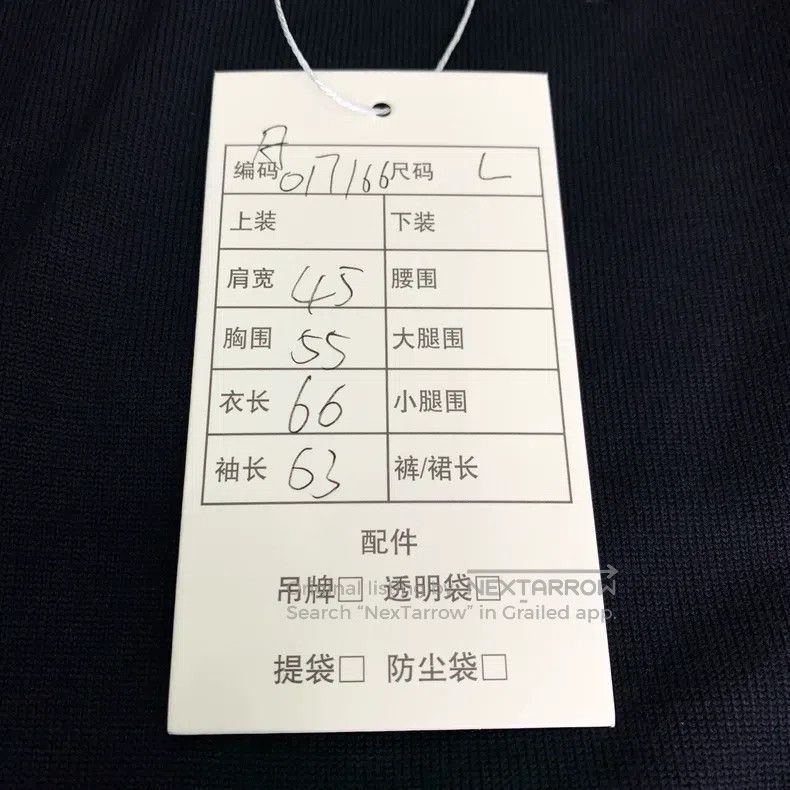 编码 A017166 尺码 L
上装 下装
肩宽 45 腰围
胸围 55 大腿围
衣长 66 小腿围
袖长 63 裤/裙长
配件
吊牌□ 透明袋□
Original listing by NEXTARROW
Search “NexTarrow” in Grailed app.
提袋□ 防尘袋□